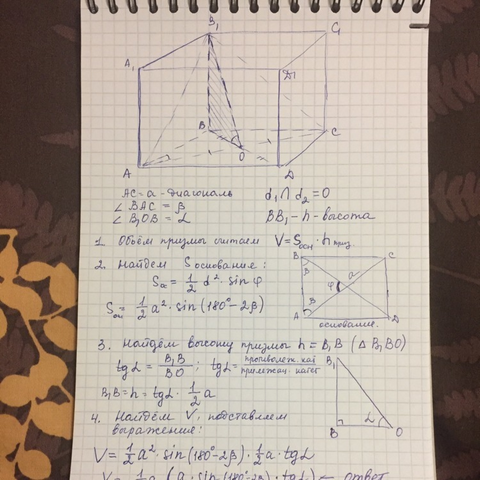 B₁
C₁
A₁
D₁
B
C
O
A
D
AC = a - диагональ
d₁ ∩ d₂ = O
∠ BAC = β
∠ B₁OB = L
BB₁ - h - высота
1. Объём призмы считаем V = Sосн · h приз
2. Найдем S основание:
Sос = 1/2 d² · sin φ
Sосн = 1/2 a² · sin (180° - 2β)
B
C
β
φ
a
β
A
D
основание.
3. Найдём высоту призмы h = B₁B (Δ B₁BO)
tgL = B₁B / BO ; tgL = противолеж. кат / прилежащ. катет
B₁B = h = tgL · 1/2 a
B₁
B
L
O
4. Найдём V, подставляем
выражение:
V = 1/2 a² · sin (180° - 2β) · 1/2 a · tgL
← ответ